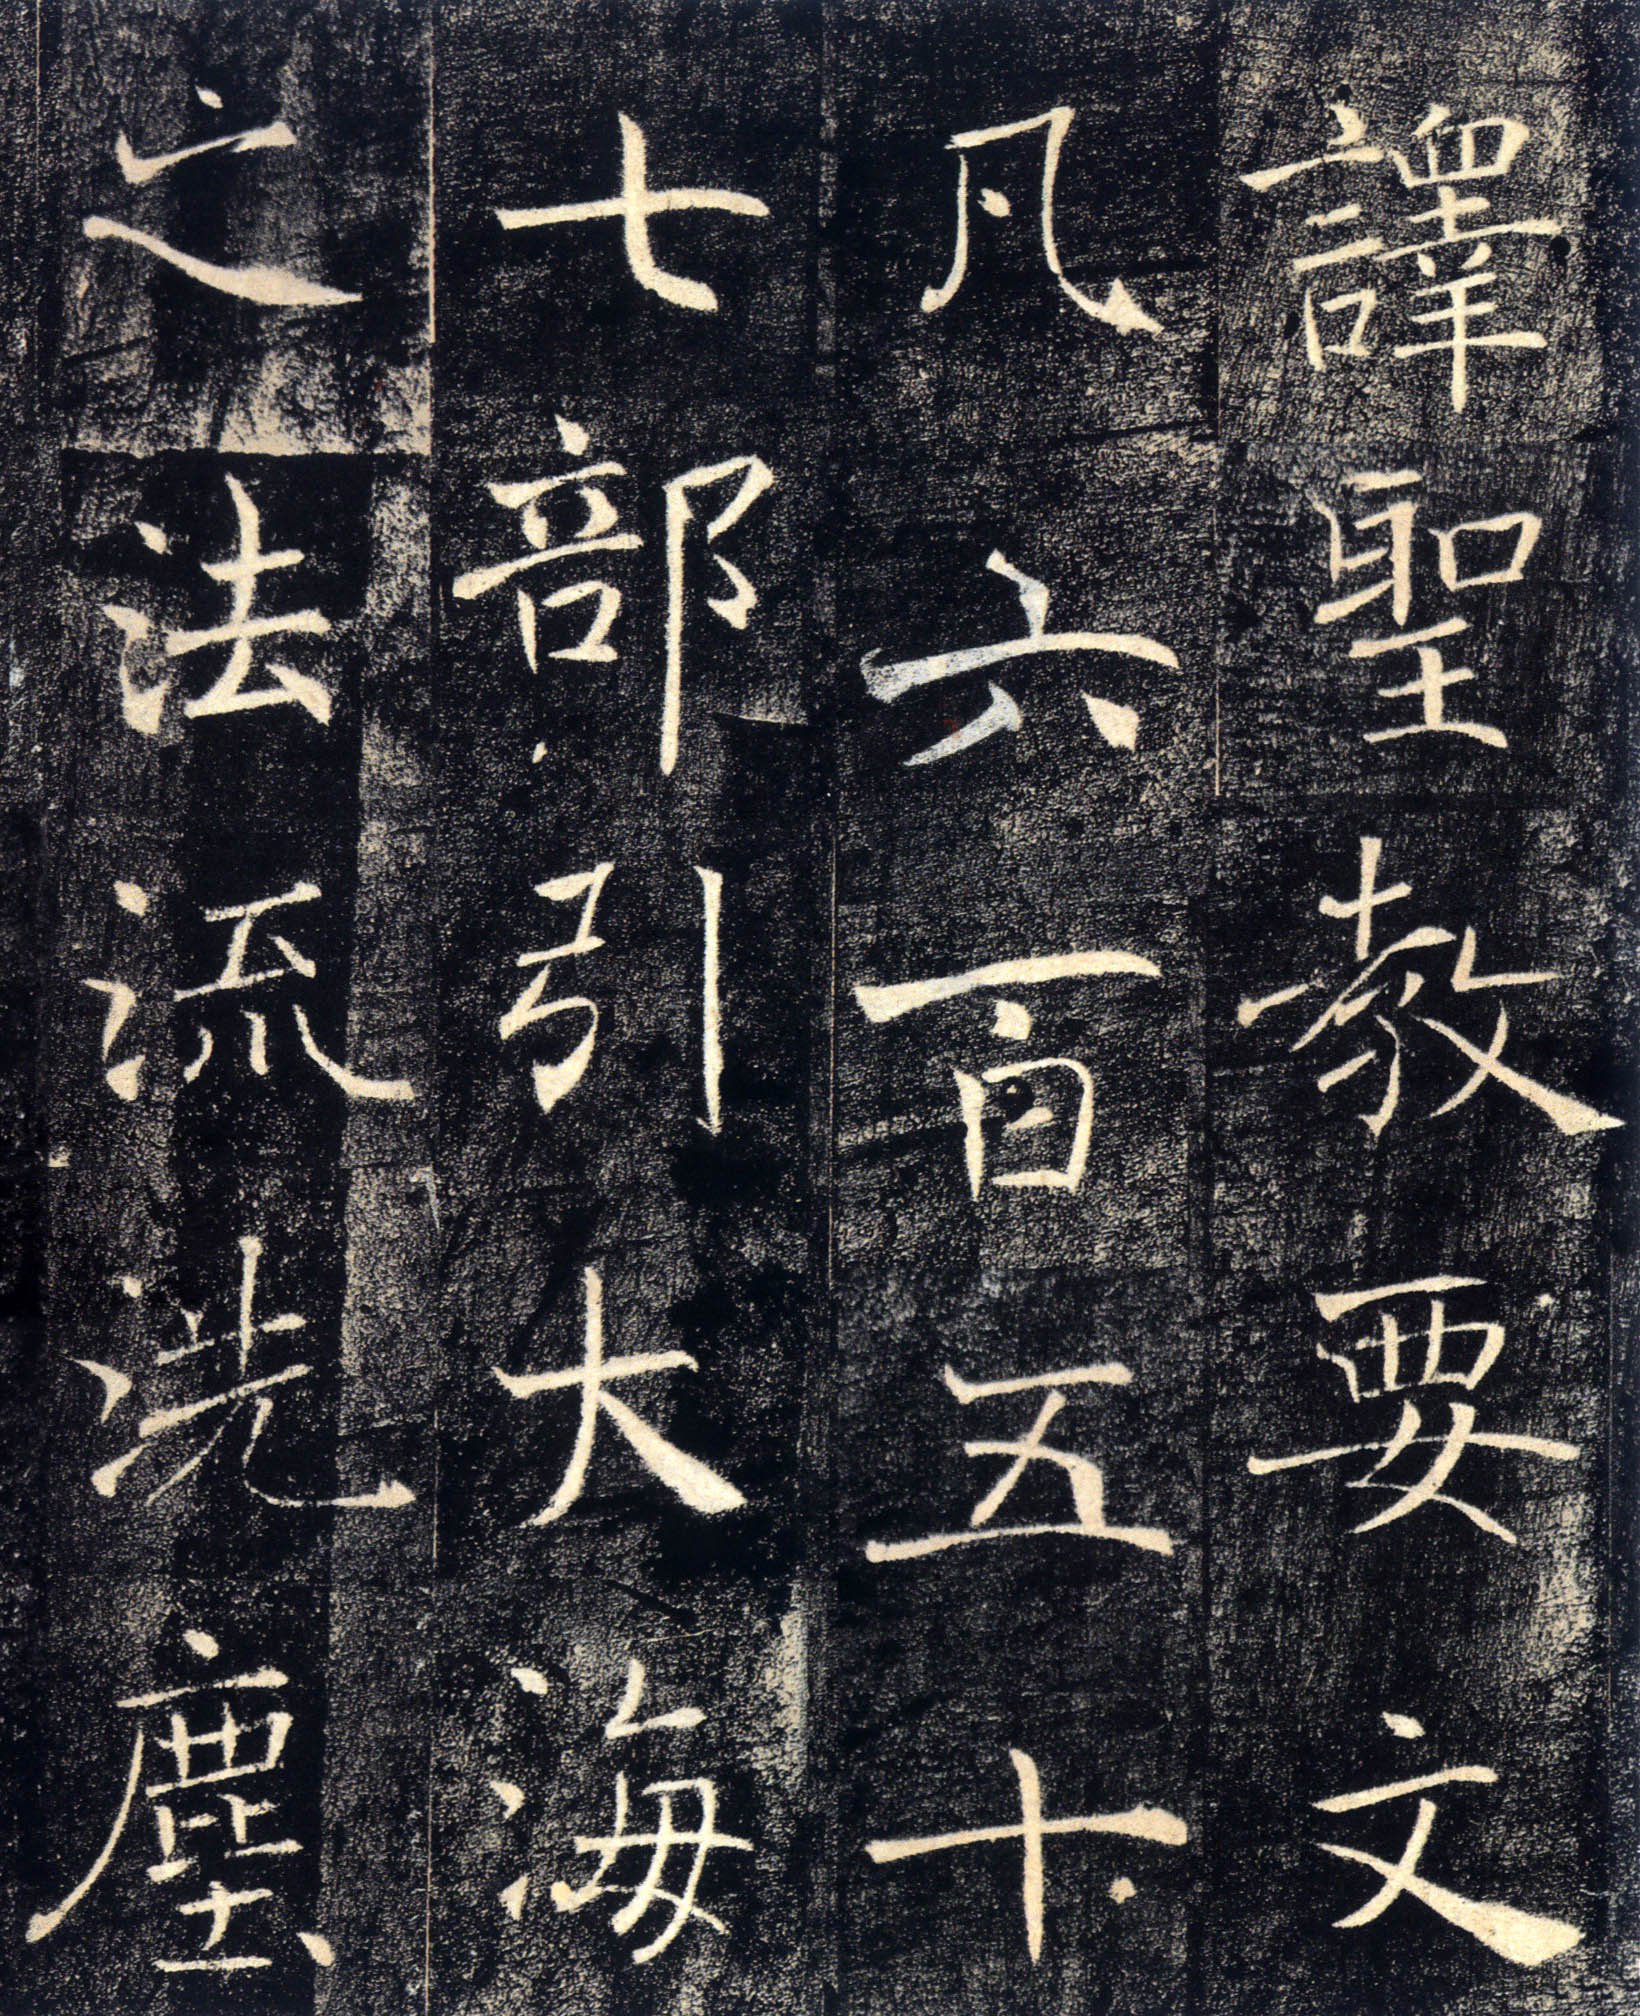 譯聖教要文
凡六百五十
七部引大海
之法流洗塵